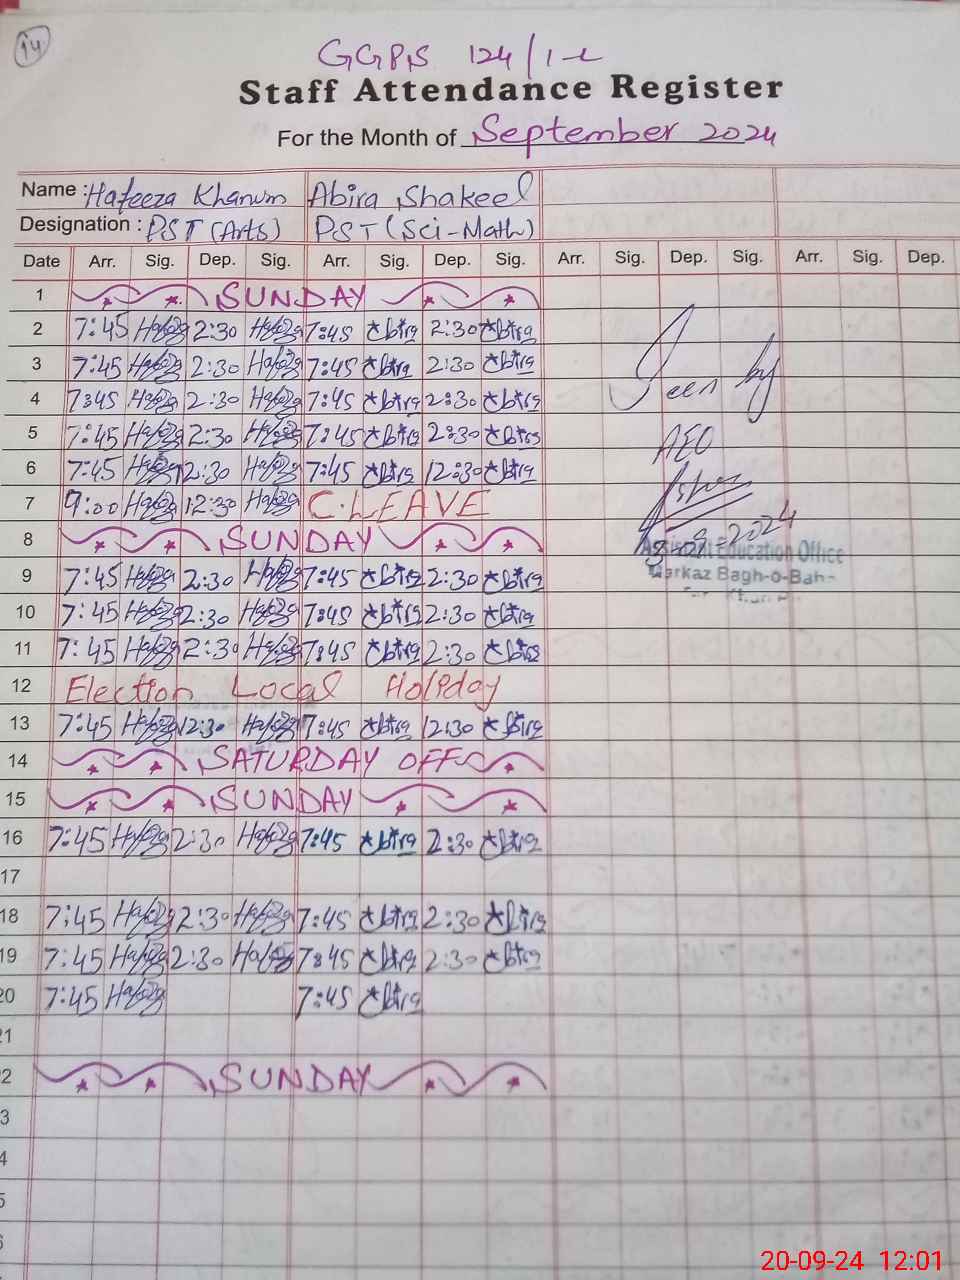 14
GGPS 124/1-L
Staff Attendance Register
For the Month of September 2024
Name : Hafeeza Khanum Abira Shakeel
Designation : PST (Arts) PST (Sci-Math)
Date Arr. Sig. Dep. Sig. Arr. Sig. Dep. Sig. Arr. Sig. Dep. Sig. Arr. Sig. Dep.
1 SUNDAY
2 7:45 Hafeeza 2:30 Hafeeza 7:45 Abira 2:30 Abira
3 7:45 Hafeeza 2:30 Hafeeza 7:45 Abira 2:30 Abira
4 7:45 Hafeeza 2:30 Hafeeza 7:45 Abira 2:30 Abira
5 7:45 Hafeeza 2:30 Hafeeza 7:45 Abira 2:30 Abira
6 7:45 Hafeeza 12:30 Hafeeza 7:45 Abira 12:30 Abira
7 9:00 Hafeeza 12:30 Hafeeza C.LEAVE
8 SUNDAY
9 7:45 Hafeeza 2:30 Hafeeza 7:45 Abira 2:30 Abira
10 7:45 Hafeeza 2:30 Hafeeza 7:45 Abira 2:30 Abira
11 7:45 Hafeeza 2:30 Hafeeza 7:45 Abira 2:30 Abira
12 Election Local Holiday
13 7:45 Hafeeza 12:30 Hafeeza 7:45 Abira 12:30 Abira
14 SATURDAY OFF
15 SUNDAY
16 7:45 Hafeeza 2:30 Hafeeza 7:45 Abira 2:30 Abira
17
18 7:45 Hafeeza 2:30 Hafeeza 7:45 Abira 2:30 Abira
19 7:45 Hafeeza 2:30 Hafeeza 7:45 Abira 2:30 Abira
20 7:45 Hafeeza 7:45 Abira
21
2 SUNDAY
3
4
5
6
Seen by
AEO
-9-2024
Assistant Education Office
Markaz Bagh-o-Bah-
20-09-24 12:01